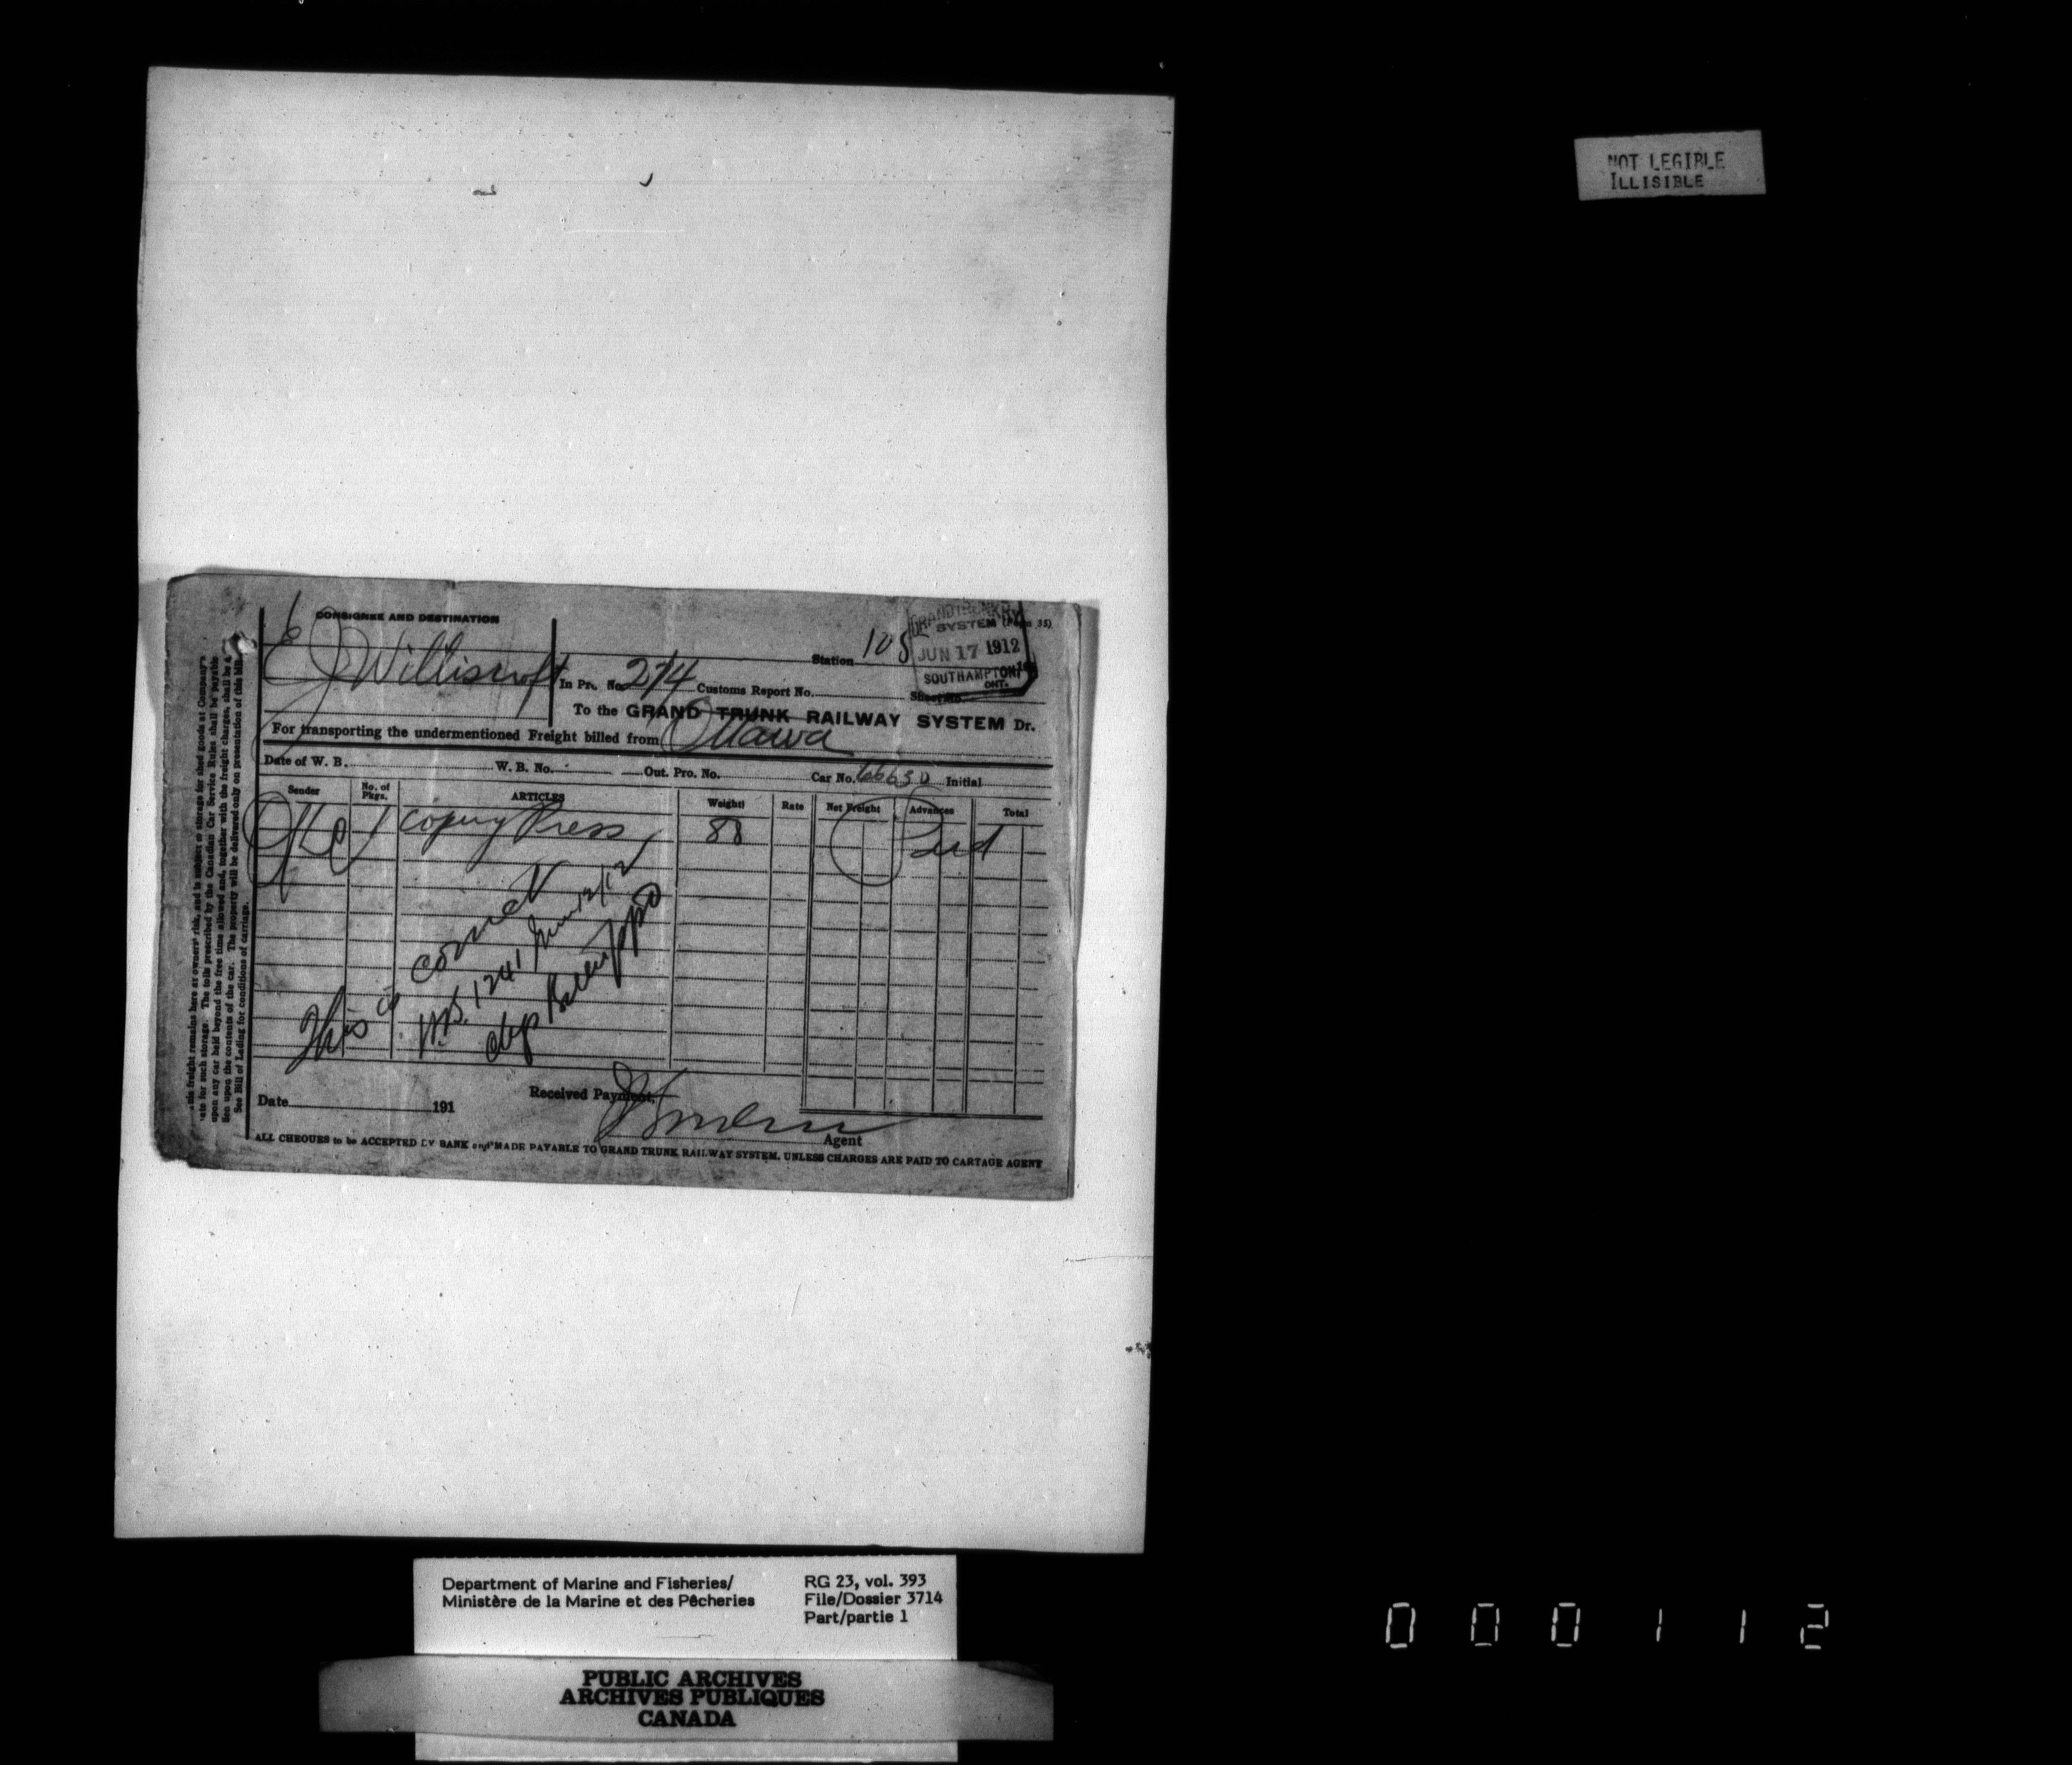 NOT LEGIBLE
ILLISIBLE
CONSIGNEE AND DESTINATION
GRAND TRUNK RY
SYSTEM
JUN 17 1912
SOUTHAMPTON
ONT.
E J Williscroft
Station 108
In Pr. No. 274 Customs Report No. Sheet No.
To the GRAND TRUNK RAILWAY SYSTEM Dr.
For transporting the undermentioned Freight billed from Ottawa
Date of W. B. W. B. No. Out. Pro. No. Car No. 66630 Initial
Sender No. of Pkgs. ARTICLES Weight Rate Net Freight Advances Total
1 Copying Press 88 Paid
This is correct
W.B. 1241 Jun 12/12
Date 191
Received Payment,
Agent
ALL CHEQUES to be ACCEPTED BY BANK and MADE PAYABLE TO GRAND TRUNK RAILWAY SYSTEM, UNLESS CHARGES ARE PAID TO CARTAGE AGENT
freight remains here at owners' risk, and is subject to storage for shed goods at Company's
rate for such storage. The tolls prescribed by the Canadian Car Service Rules shall be payable
upon any car held beyond the free time allowed and, together with the freight charges, shall be a
lien upon the contents of the car. The property will be delivered only on presentation of this bill.
See Bill of Lading for conditions of carriage.
Department of Marine and Fisheries/
Ministère de la Marine et des Pêcheries
RG 23, vol. 393
File/Dossier 3714
Part/partie 1
PUBLIC ARCHIVES
ARCHIVES PUBLIQUES
CANADA
000112